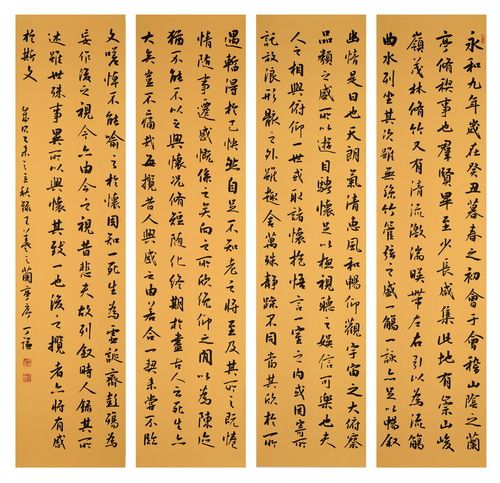 永和九年歲在癸丑暮春之初會于會稽山陰之蘭
亭脩禊事也羣賢畢至少長咸集此地有崇山峻
嶺茂林脩竹又有清流激湍暎帶左右引以為流觴
曲水列坐其次雖無絲竹管弦之盛一觴一詠亦足以暢敘
幽情是日也天朗氣清惠風和暢仰觀宇宙之大俯察
品類之盛所以遊目騁懷足以極視聽之娛信可樂也夫
人之相與俯仰一世或取諸懷抱悟言一室之內或因寄所
託放浪形骸之外雖趣舍萬殊靜躁不同當其欣於所
遇暫得於己快然自足不知老之將至及其所之既惓
情隨事遷感慨係之矣向之所欣俛仰之閒以為陳迹
猶不能不以之興懷況脩短隨化終期於盡古人云死生亦
大矣豈不痛哉每攬昔人興感之由若合一契未嘗不臨
文嗟悼不能喻之於懷固知一死生為虛誕齊彭殤為
妄作後之視今亦由今之視昔悲夫故列敘時人錄其所
述雖世殊事異所以興懷其致一也後之攬者亦將有感
於斯文
歲次乙未之立秋錄王羲之蘭亭序